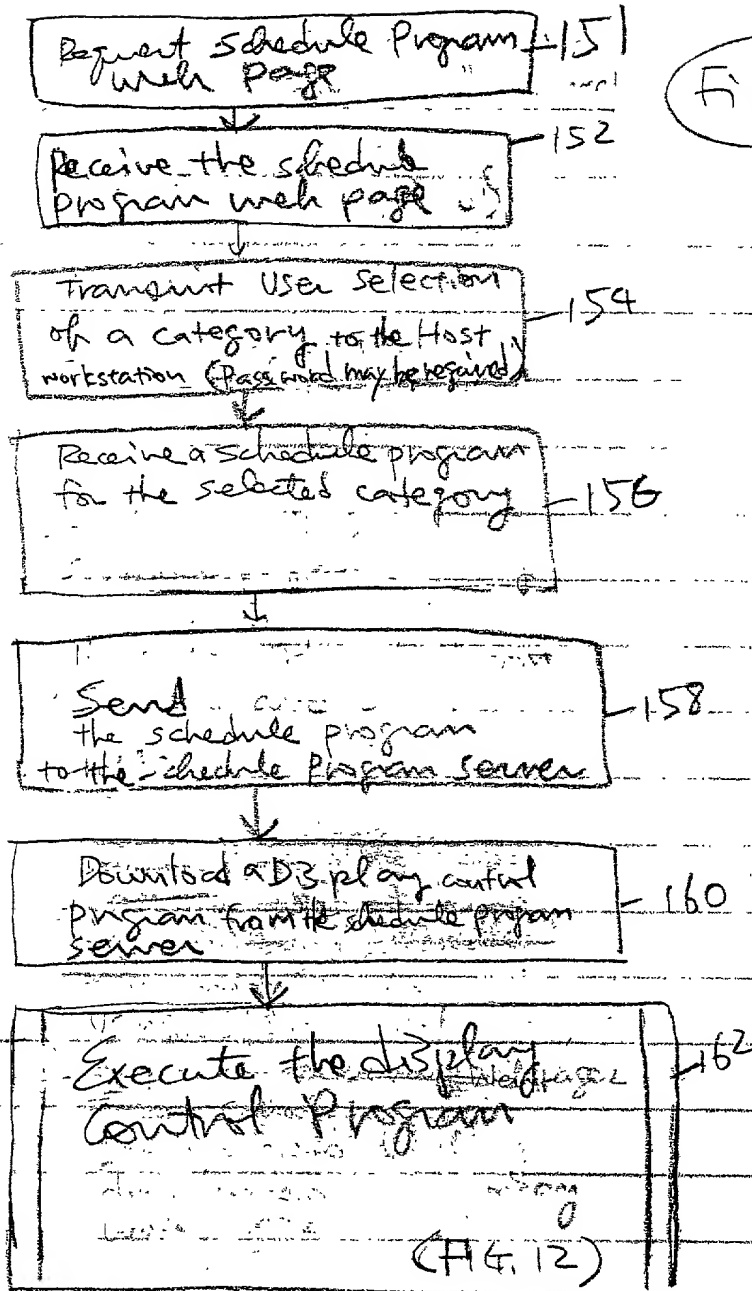 Request Schedule Program
web page
151
Fi
152
Receive the schedule
program web page
Transmit User Selection
of a category to the Host
workstation (Password may be required)
154
Receive a schedule program
for the selected category
156
Send
the schedule program
to the schedule Program server
158
Download a Display control
program from the schedule program
server
160
Execute the display
Control Program
162
(FIG. 12)